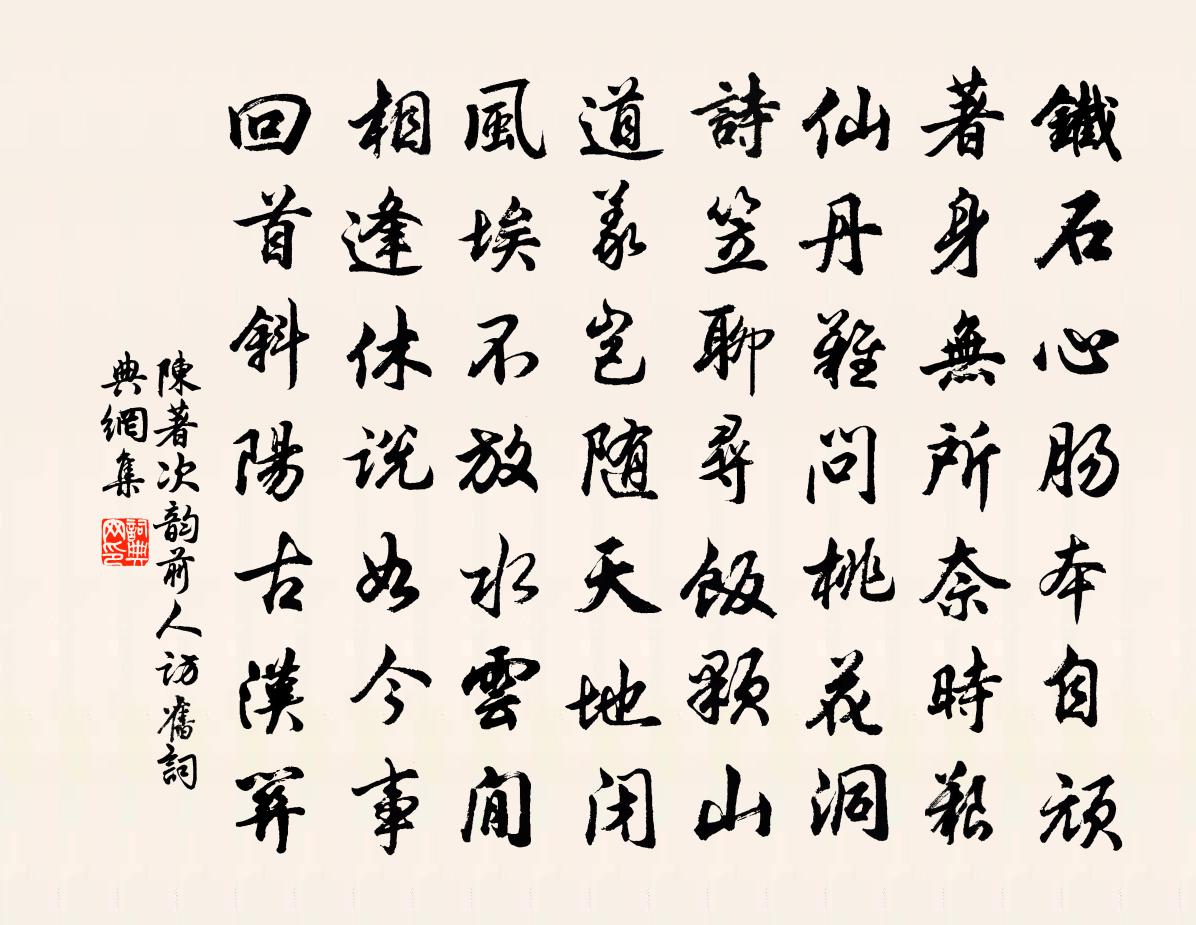 鐵石心腸本自頑
著身無所奈時艱
仙丹難問桃花洞
詩笠聊尋飯顆山
道義豈随天地閉
風埃不放水雲閒
相逢休説如今事
回首斜陽古漢關
陳著次韵前人訪舊詞
典網集
詞典网印